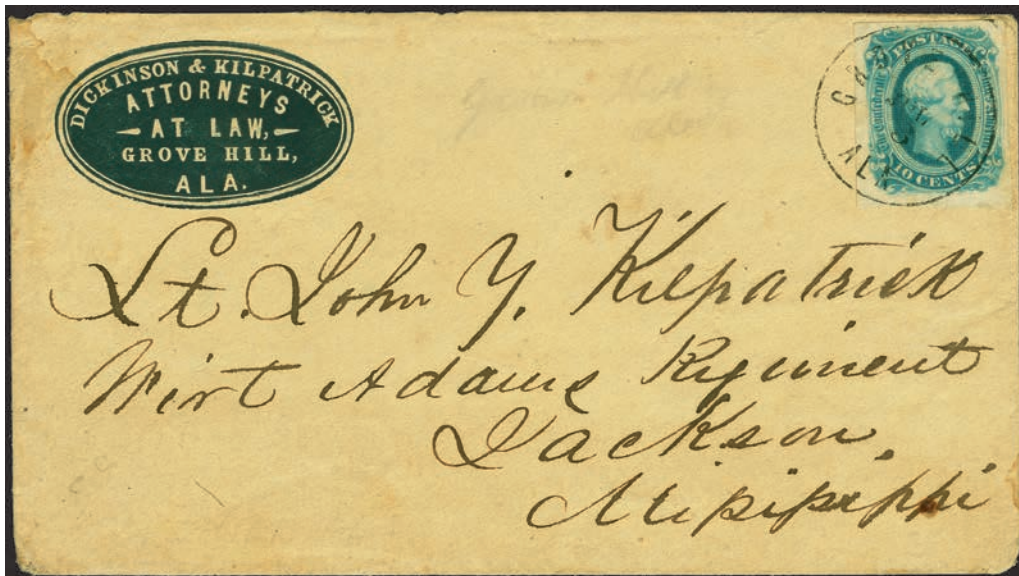 DICKINSON & KILPATRICK
ATTORNEYS
AT LAW,
GROVE HILL,
ALA.
POSTAGE
10 CENTS
ALA
Lt. John Y. Kilpatrick
Wirt Adams Regiment
Jackson,
Missississippi